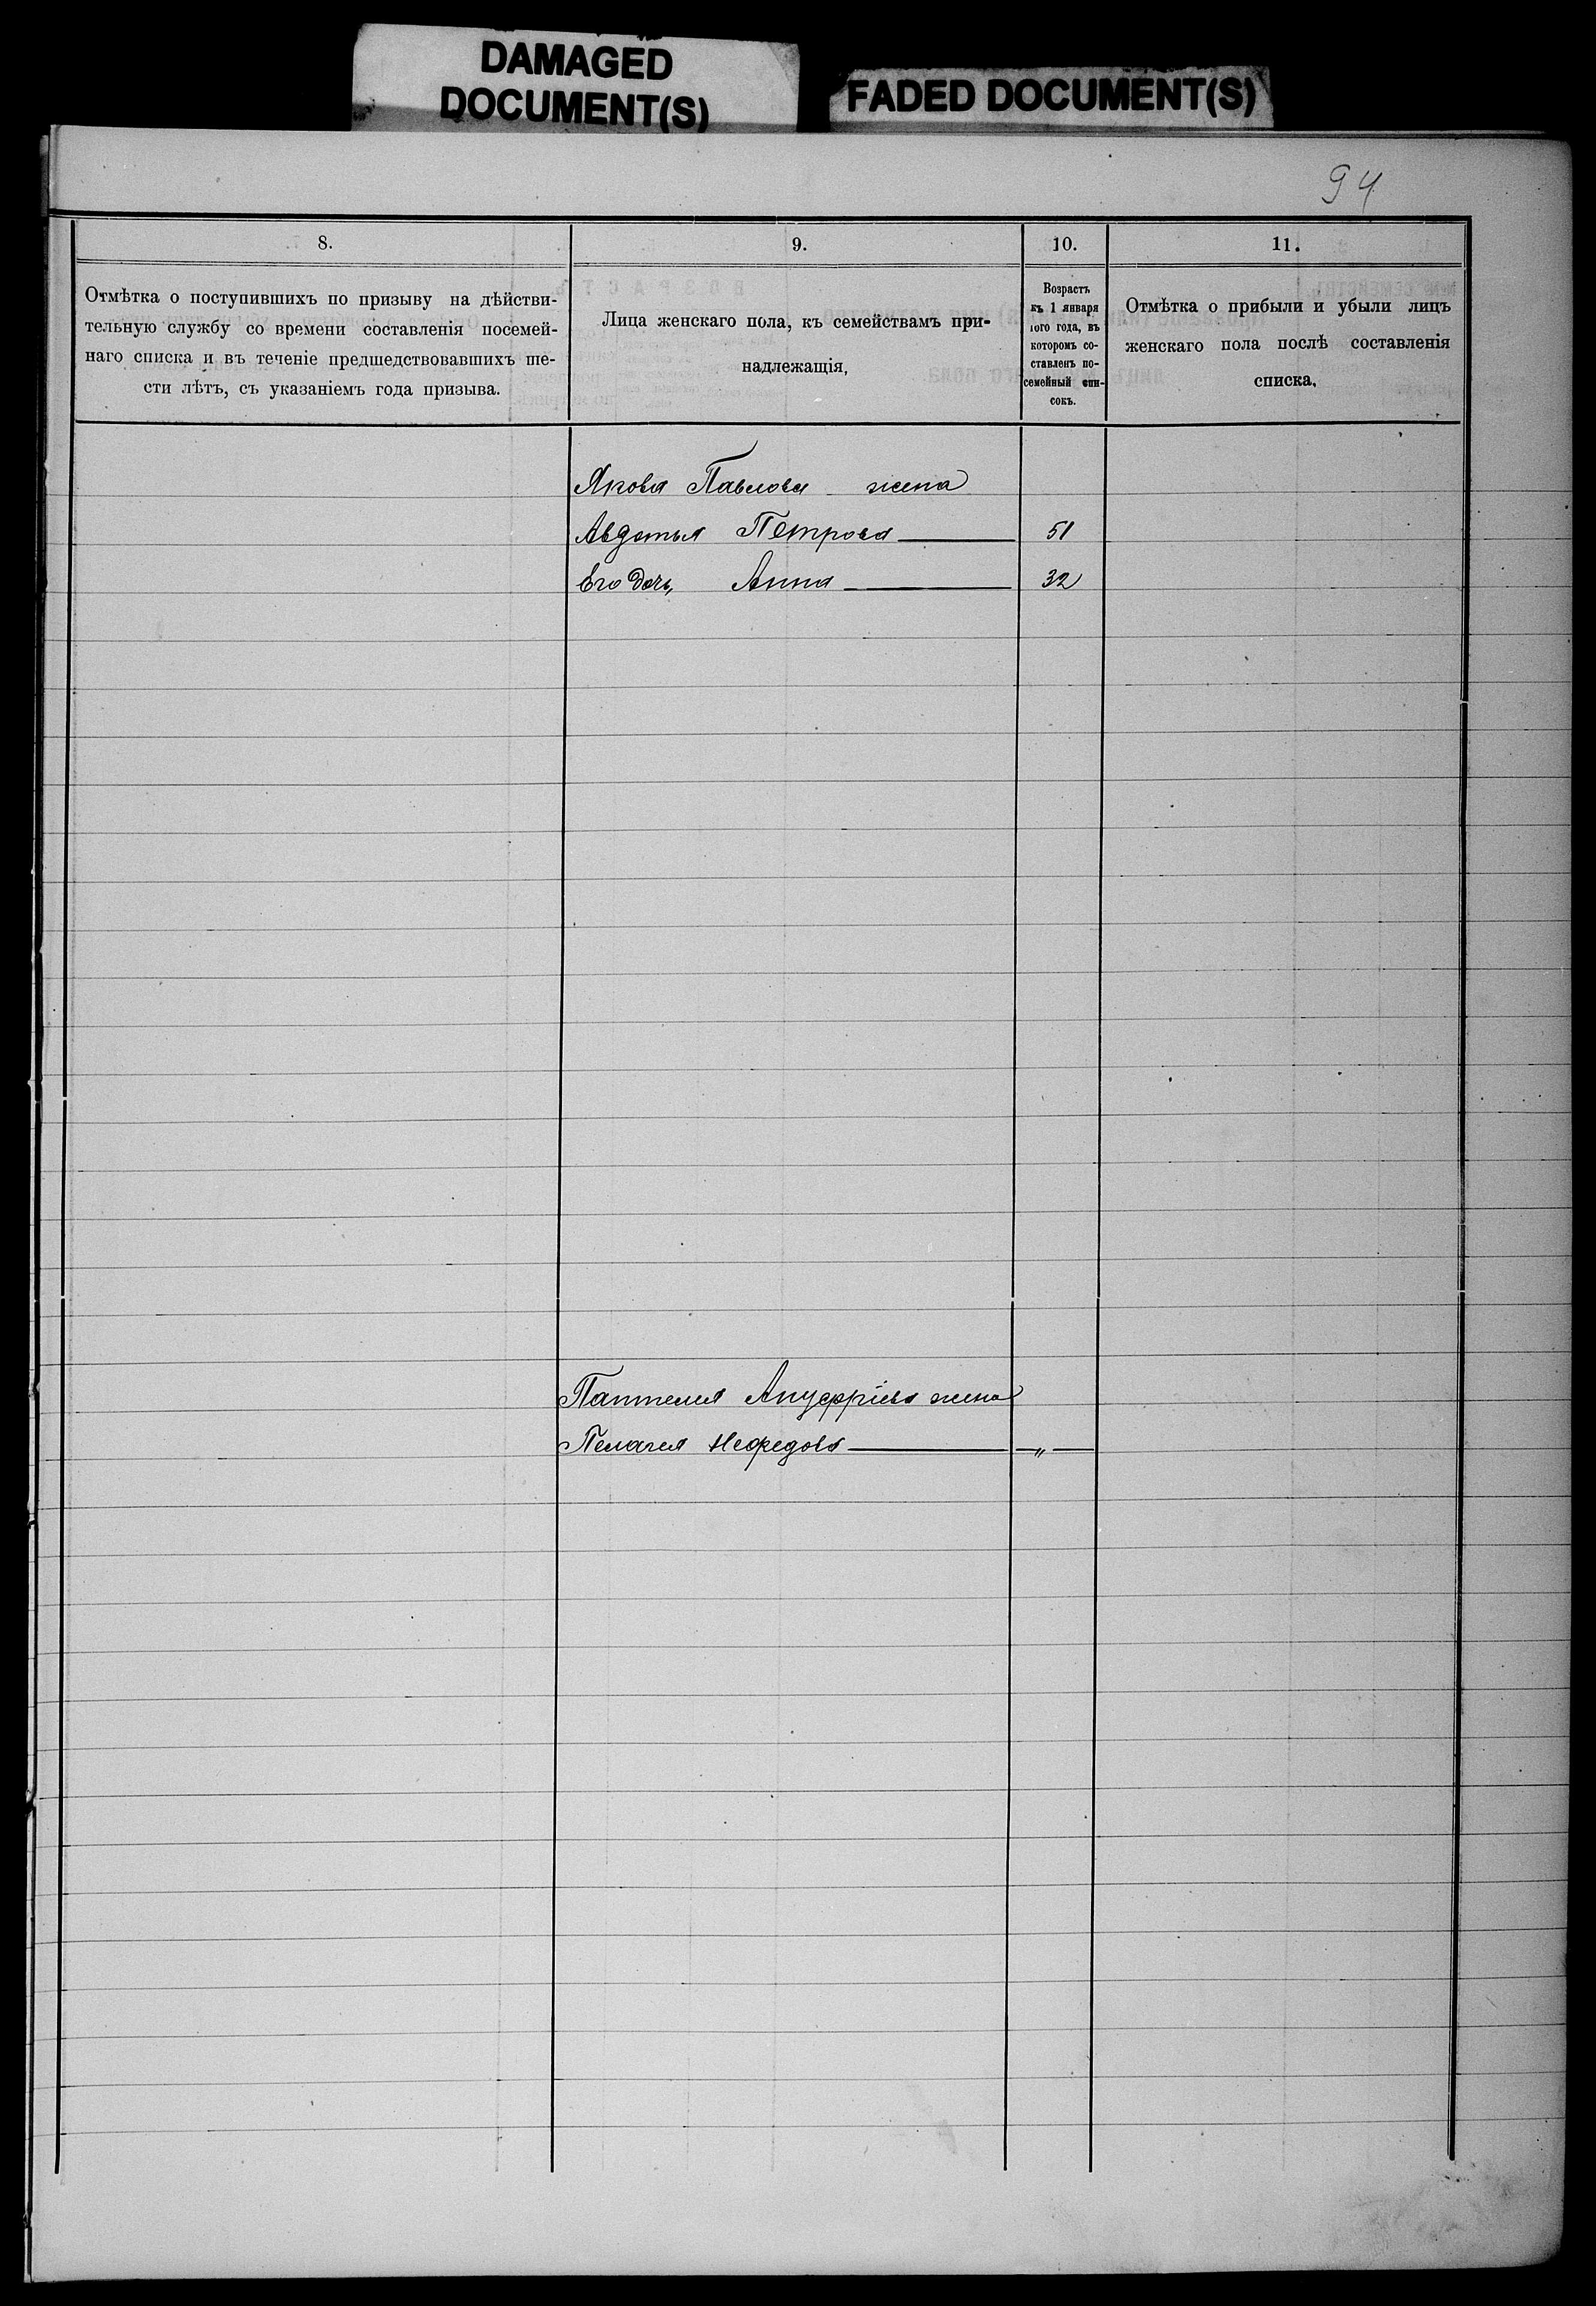 DAMAGED
DOCUMENT(S)
FADED DOCUMENT(S)
94
8.
9.
10.
11.
Отмѣтка о поступившихъ по призыву на дѣйстви-
тельную службу со времени составленія посемей-
наго списка и въ теченіе предшедствовавшихъ ше-
сти лѣтъ, съ указаніемъ года призыва.
Лица женскаго пола, къ семействамъ при-
надлежащія,
Возрастъ
къ 1 января
того года, въ
которомъ со-
ставленъ по-
семейный спи-
сокъ.
Отмѣтка о прибыли и убыли лицъ
женскаго пола послѣ составленія
списка.
Якова Павлова жена
Авдотья Петрова 51
Его дочь, Анна 32
Пантелея Ануфріева жена
Пелагея Нефедова „